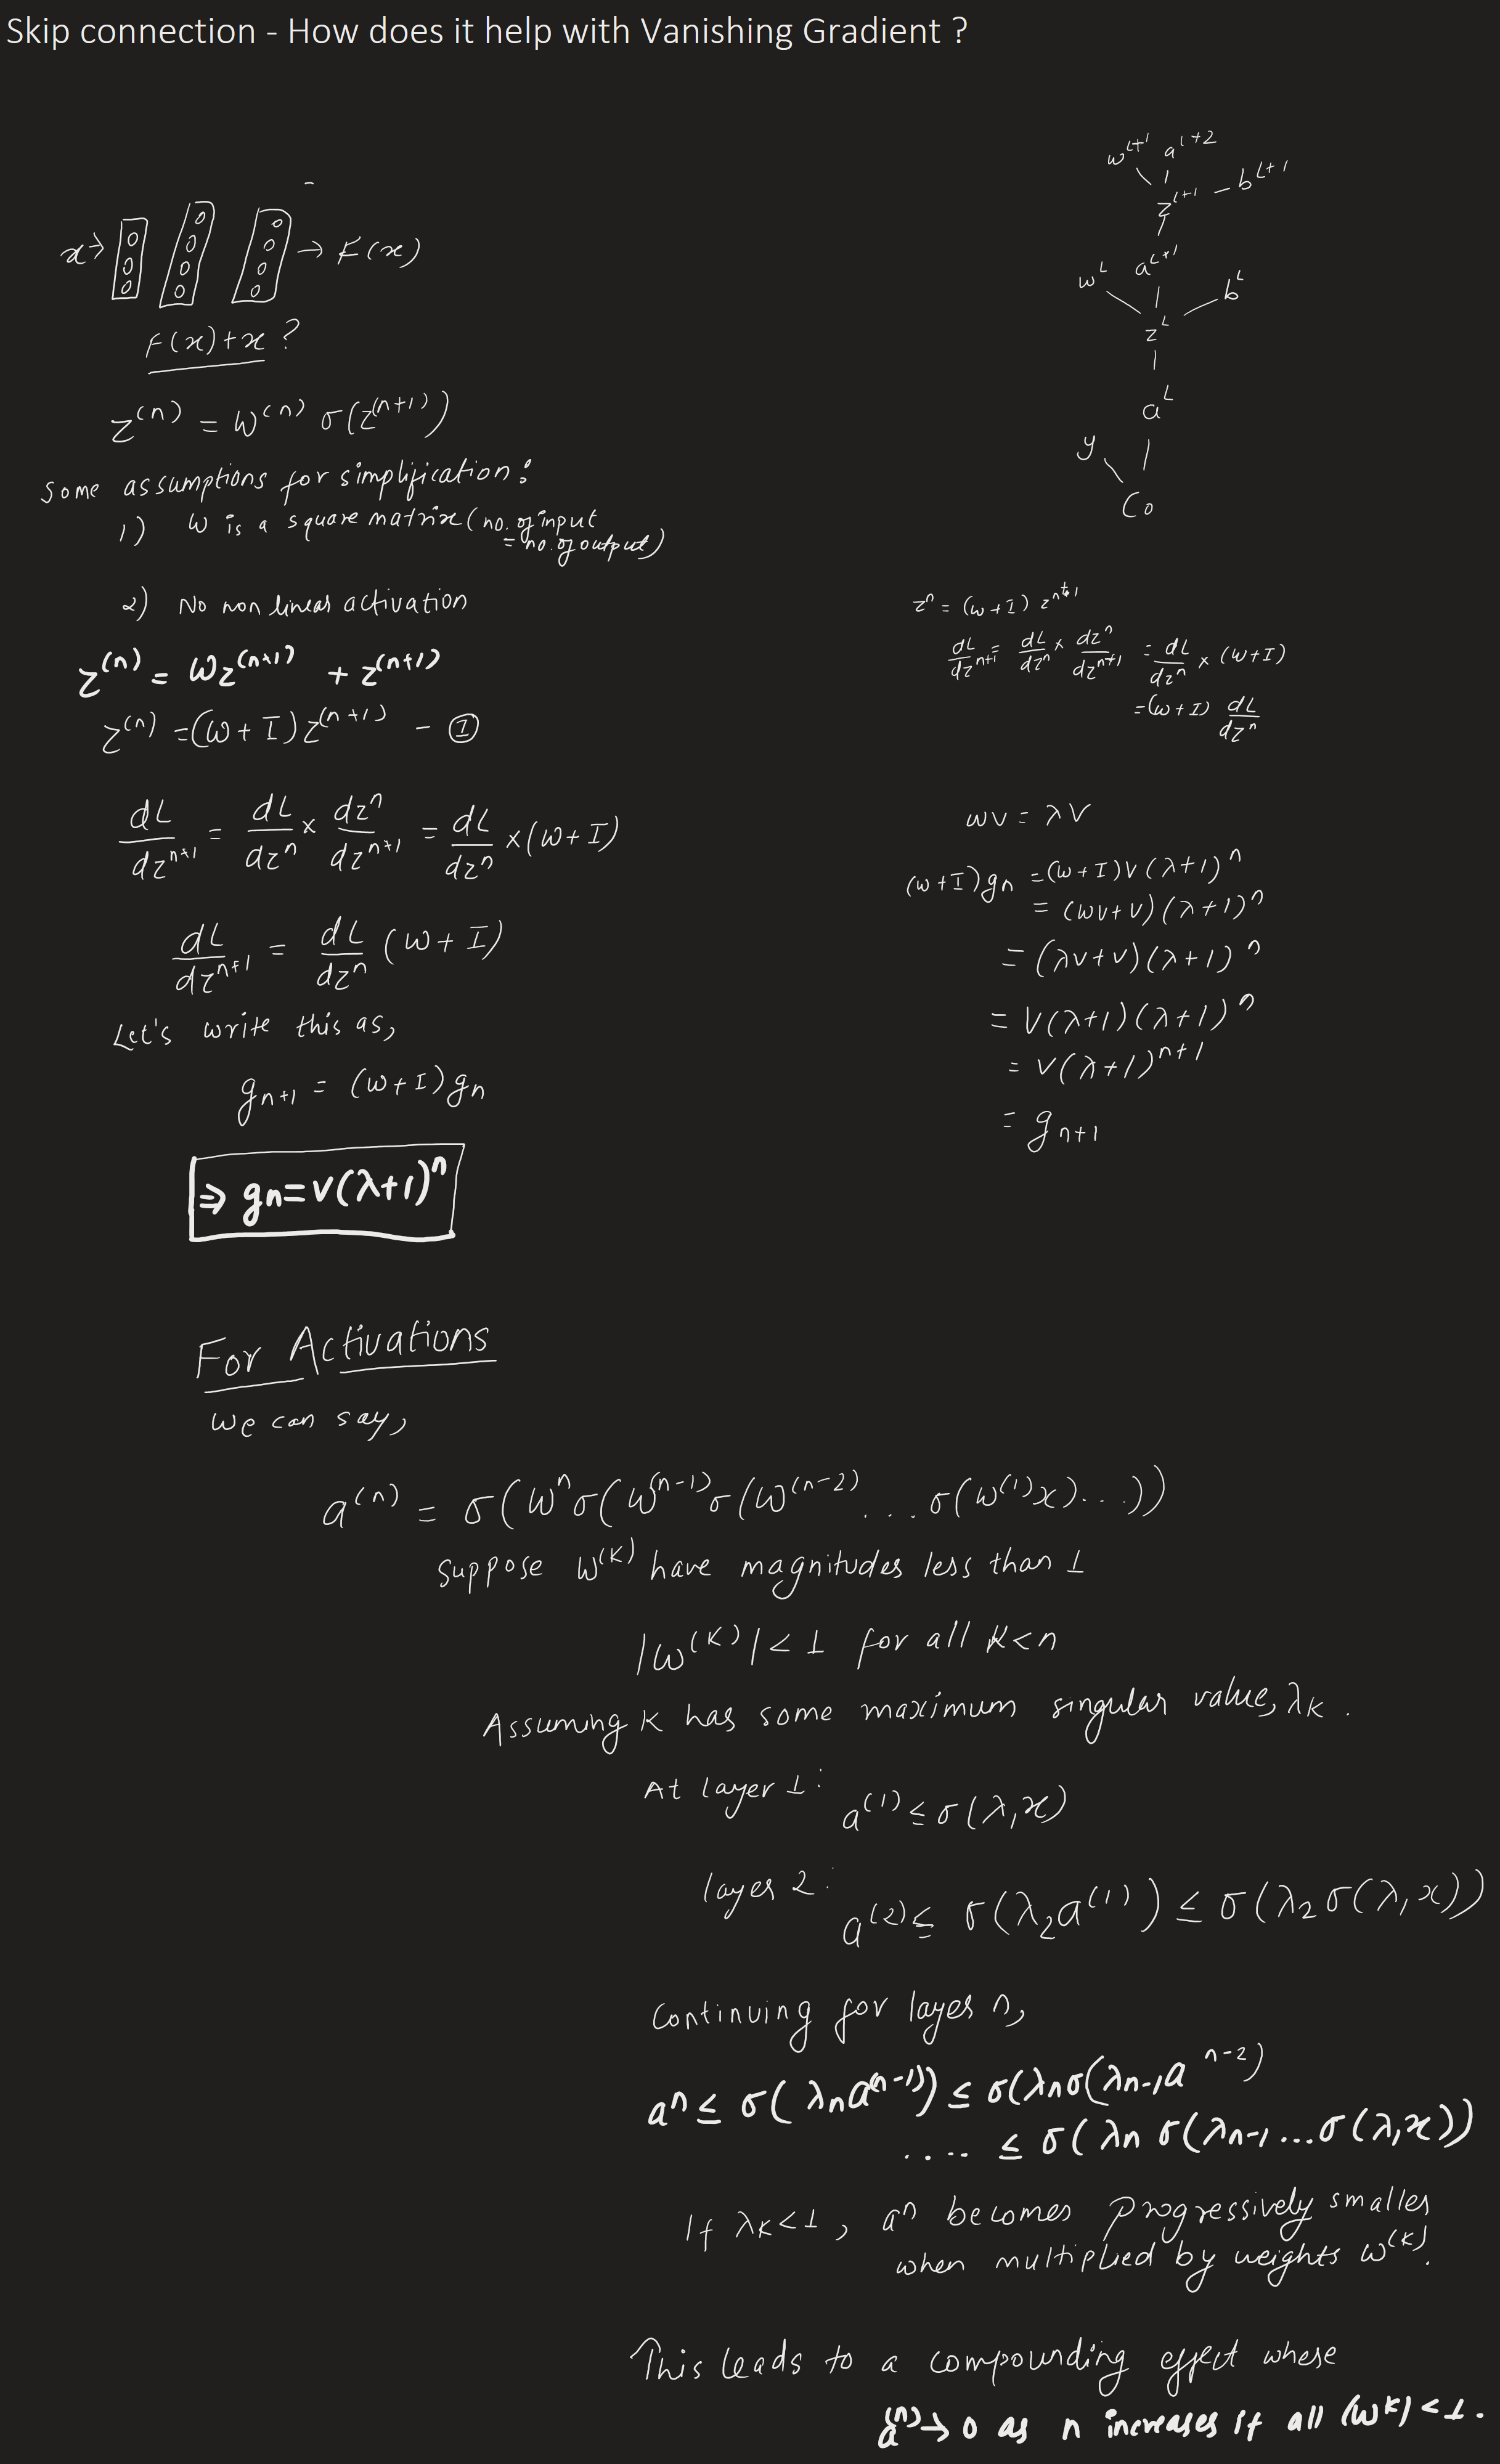 Skip connection - How does it help with Vanishing Gradient ?
x→ → F(x)
F(x)+x ?
z^(n) = w^(n) σ(z^(n+1))
Some assumptions for simplification:
1) w is a square matrix (no. of input
= no. of output)
2) No non linear activation
z^(n) = wz^(n+1) + z^(n+1)
z^(n) = (w+I)z^(n+1) - ①
dL/dz^n+1 = dL/dz^n × dz^n/dz^n+1 = dL/dz^n × (w+I)
dL/dz^n+1 = dL/dz^n (w+I)
Let's write this as,
g_n+1 = (w+I)g_n
⇒ g_n = v(λ+1)^n
w^L+1 a^L+2
z^L+1 - b^L+1
w^L a^L+1 b^L
z^L
a^L
y
Co
z^n = (w+I) z^n+1
dL/dz^n+1 = dL/dz^n × dz^n/dz^n+1 = dL/dz^n × (w+I)
= (w+I) dL/dz^n
wv = λv
(w+I)g_n = (w+I)v(λ+1)^n
= (wv+v)(λ+1)^n
= (λv+v)(λ+1)^n
= v(λ+1)(λ+1)^n
= v(λ+1)^n+1
= g_n+1
For Activations
we can say,
a^(n) = σ(w^n σ(w^(n-1) σ(w^(n-2) ... σ(w^(1)x)...))
Suppose w^(k) have magnitudes less than 1
|w^(k)| < 1 for all k<n
Assuming k has some maximum singular value, λ_k.
At layer 1: a^(1) ≤ σ(λ_1x)
layer 2: a^(2) ≤ σ(λ_2a^(1)) ≤ σ(λ_2σ(λ_1x))
Continuing for layer n,
a^n ≤ σ(λ_na^(n-1)) ≤ σ(λ_nσ(λ_n-1a^n-2)
.... ≤ σ(λ_n σ(λ_n-1...σ(λ_1x))
If λ_k<1, a^n becomes progressively smaller
when multiplied by weights w^(k).
This leads to a compounding effect where
a^(n)→0 as n increases if all (w^k)<1.